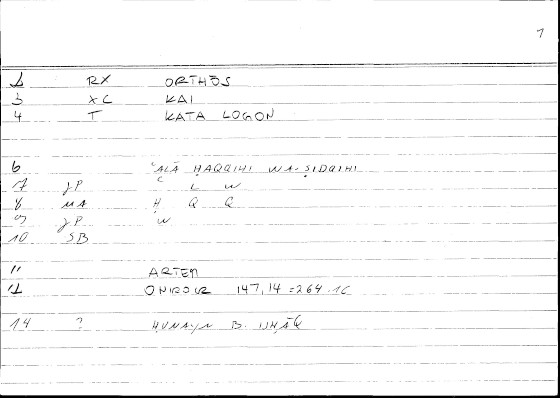 1
2 RX ORTHŌS
3 XC KAI
4 T KATA LOGON
6 ʿALĀ ḤAQQIHI WA-ṢIDQIHI
7 JP ʿ L W
8 MA Ḥ Q Q
9 JP W
10 SB
11 ARTEM
12 ONIROCR 147,14 = 264.16
14 ? ḤUNAYN B. ISḤĀQ